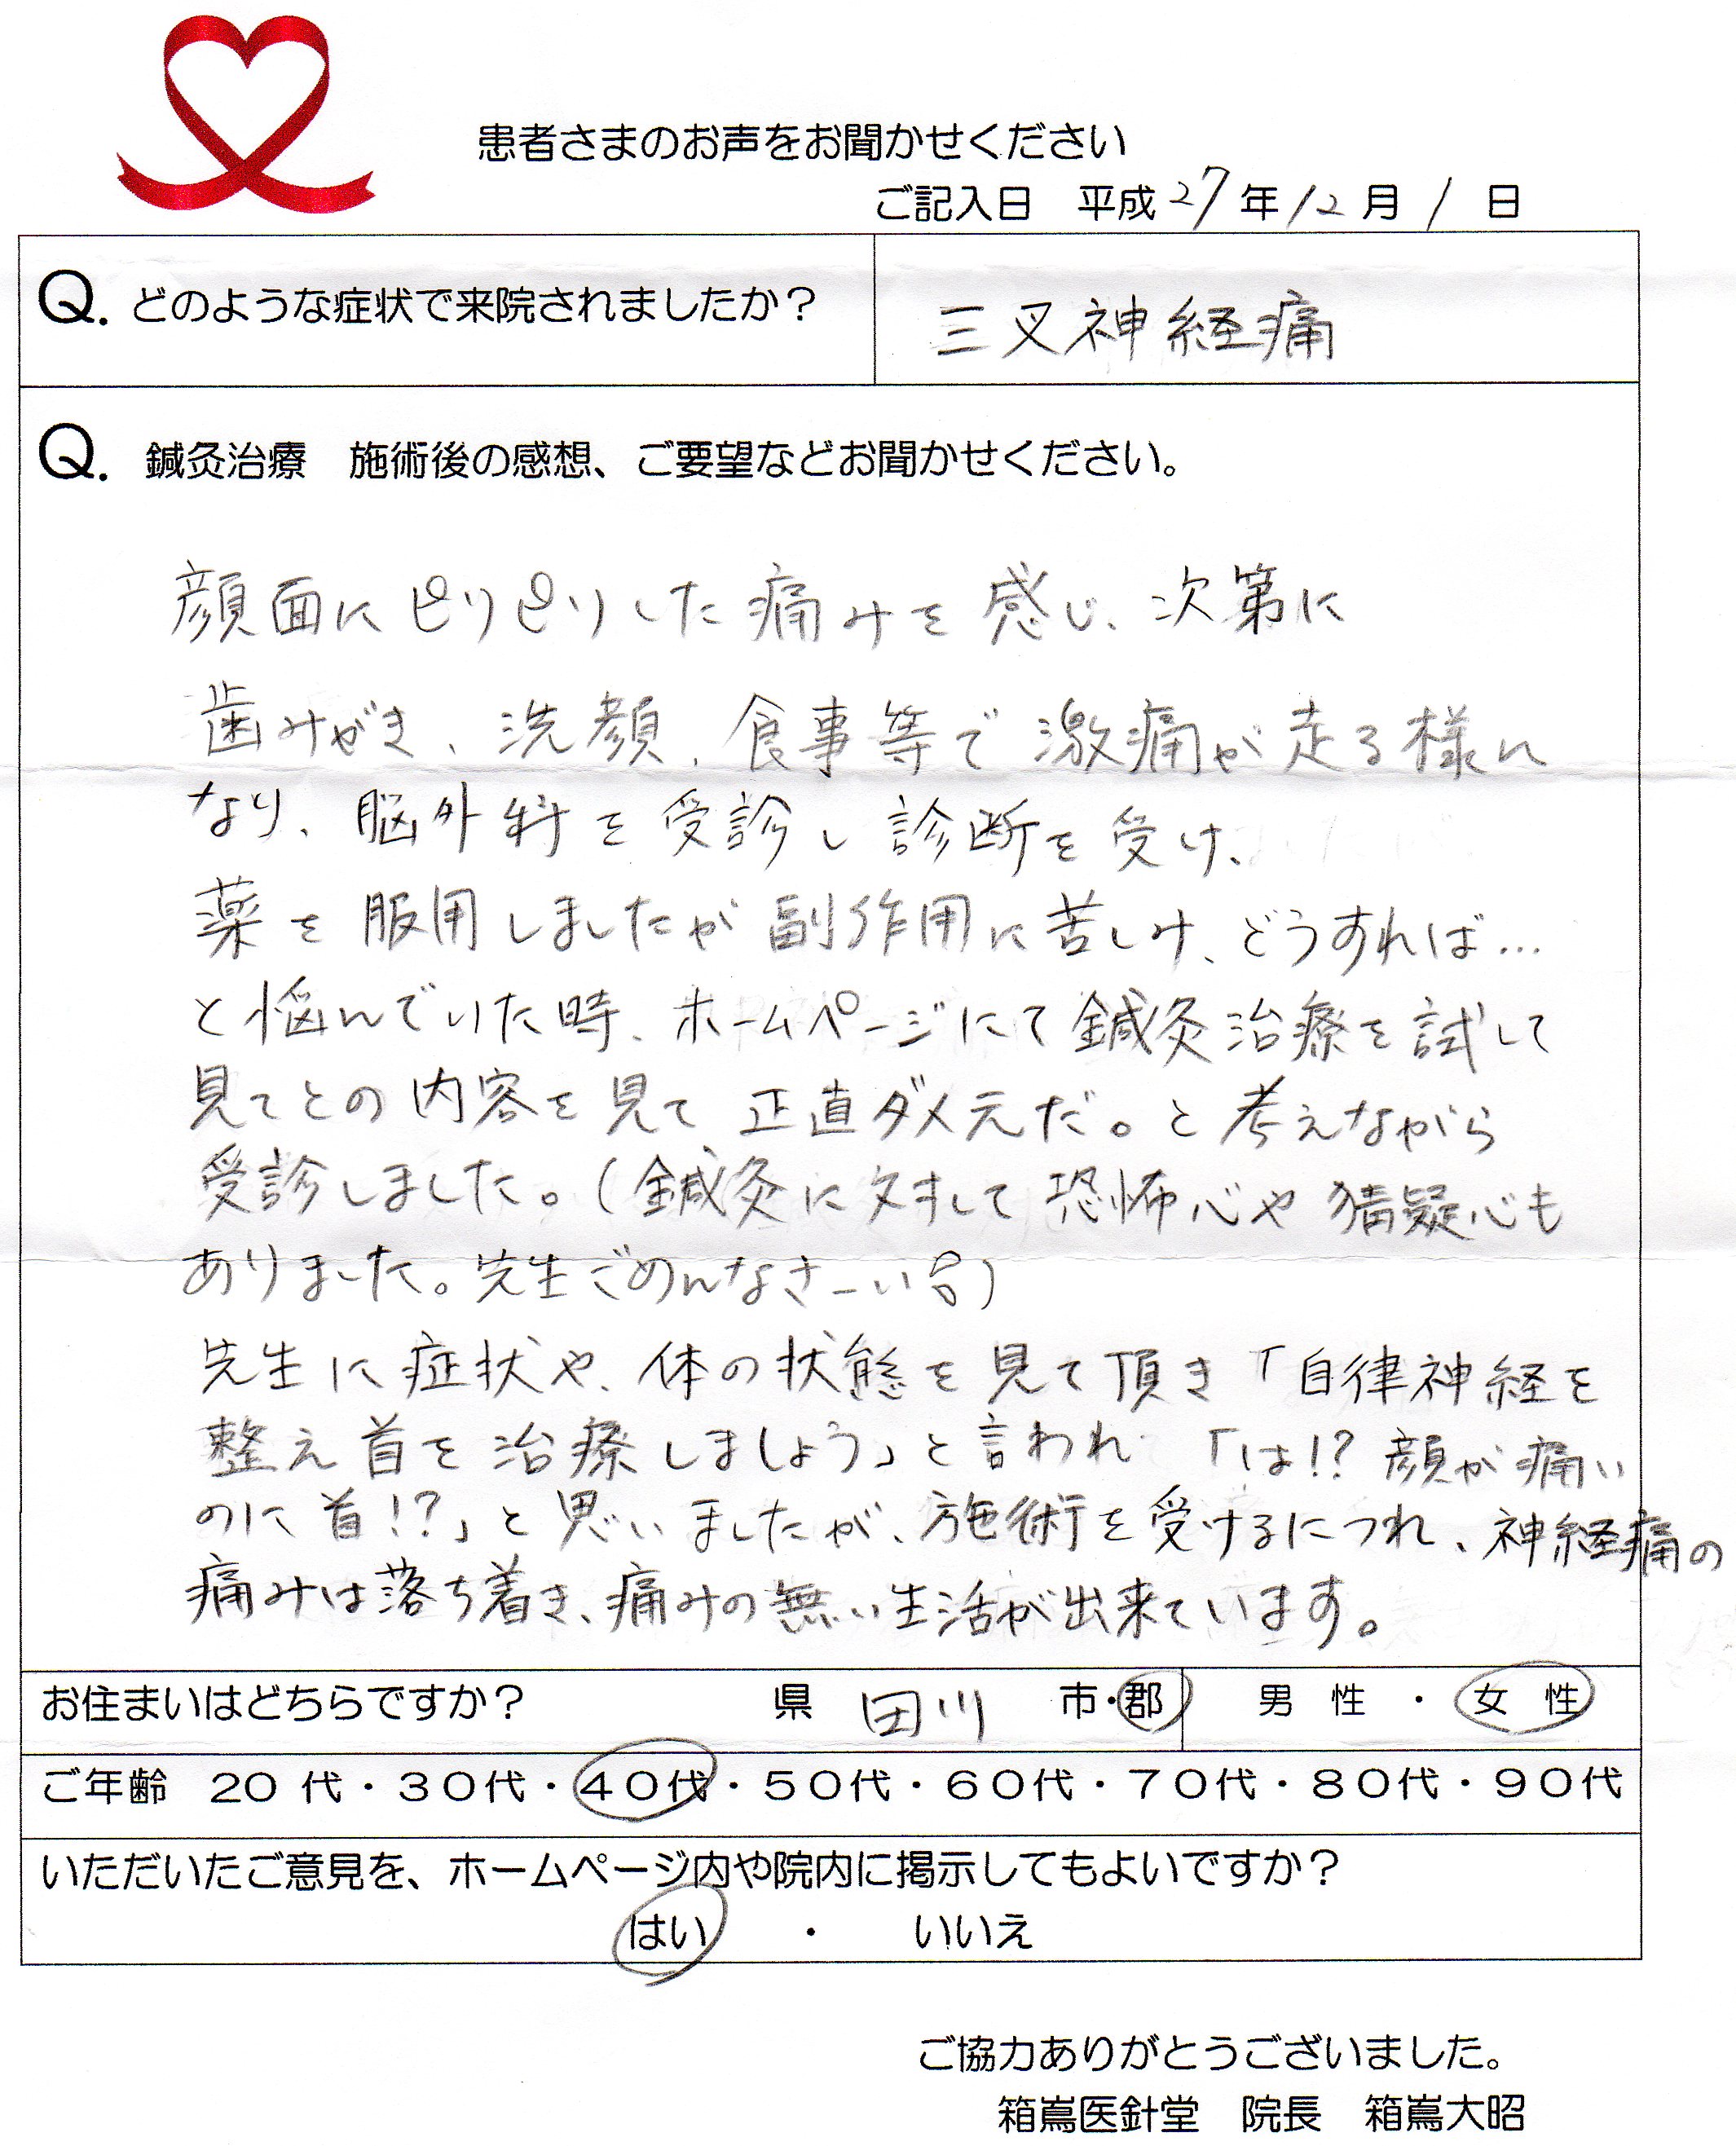 患者さまのお声をお聞かせください
ご記入日 平成27年12月1日
Q. どのような症状で来院されましたか？
三叉神経痛
Q. 鍼灸治療 施術後の感想、ご要望などお聞かせください。
顔面にピリピリした痛みを感じ、次第に
歯みがき、洗顔、食事等で激痛が走る様に
なり、脳外科を受診し診断を受け、
薬を服用しましたが副作用に苦しみ、どうすれば…
と悩んでいた時、ホームページにて鍼灸治療を試して
見てとの内容を見て、正直ダメ元だ。と考えながら
受診しました。(鍼灸に対して恐怖心や猜疑心も
ありました。先生ごめんなさーい)
先生に症状や、体の状態を見て頂き「自律神経を
整え首を治療しましょう」と言われ「は!? 顔が痛い
のに首!?」と思いましたが、施術を受けるにつれ、神経痛の
痛みは落ち着き、痛みの無い生活が出来ています。
お住まいはどちらですか？ 県 田川 市・郡 男性 ・ 女性
ご年齢 20代・30代・40代・50代・60代・70代・80代・90代
いただいたご意見を、ホームページ内や院内に掲示してもよいですか？
はい ・ いいえ
ご協力ありがとうございました。
箱嶌医針堂 院長 箱嶌大昭